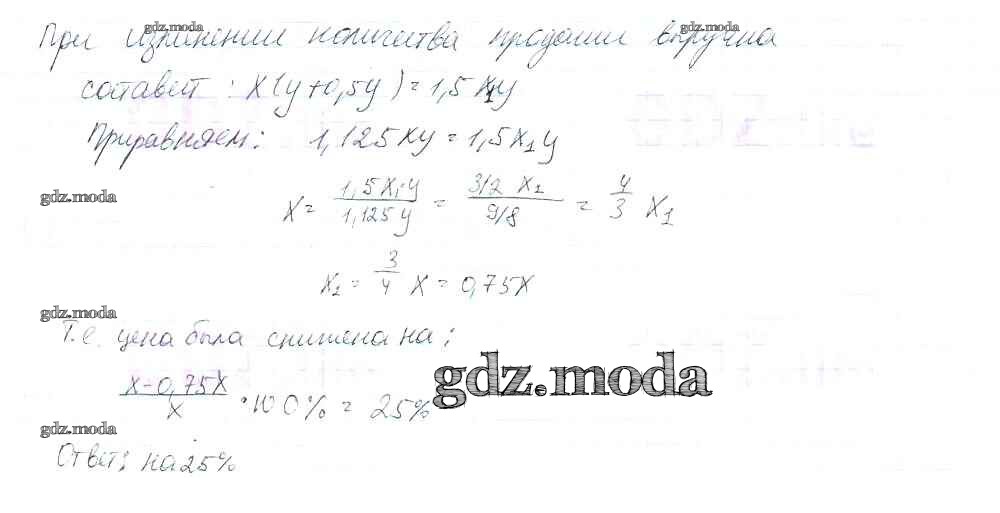 gdz.moda gdz.moda gdz.moda
При изменении количества продажи выручка
составит: X(y+0,5y)=1,5X₁y
Приравняем: 1,125Xy=1,5X₁y
gdz.moda
X = 1,5X₁y / 1,125y = 3/2 X₁ / 9/8 = 4/3 X₁
X₁ = 3/4 X = 0,75X
gdz.moda
Т.е. цена была снижена на:
X-0,75X / X · 100% = 25%
gdz.moda
gdz.moda
Ответ: на 25%